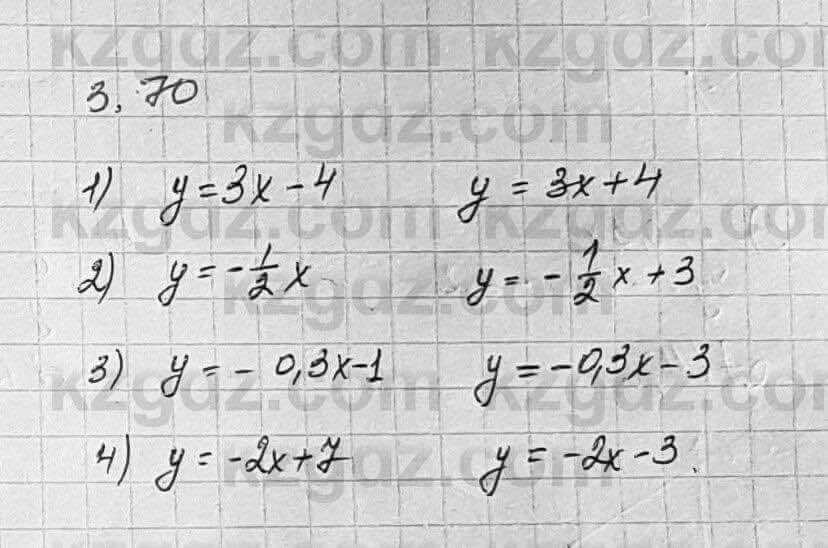 kzgdz.com kzgdz.com
3.70
kzgdz.com
1) y = 3x - 4 y = 3x + 4
kzgdz.com kzgdz.com
2) y = -1/2 x y = -1/2 x + 3
kzgdz.com
3) y = - 0,3x - 1 y = -0,3x - 3
kzgdz.com kzgdz.com
4) y = -2x + 7 y = -2x - 3.
kzgdz.com